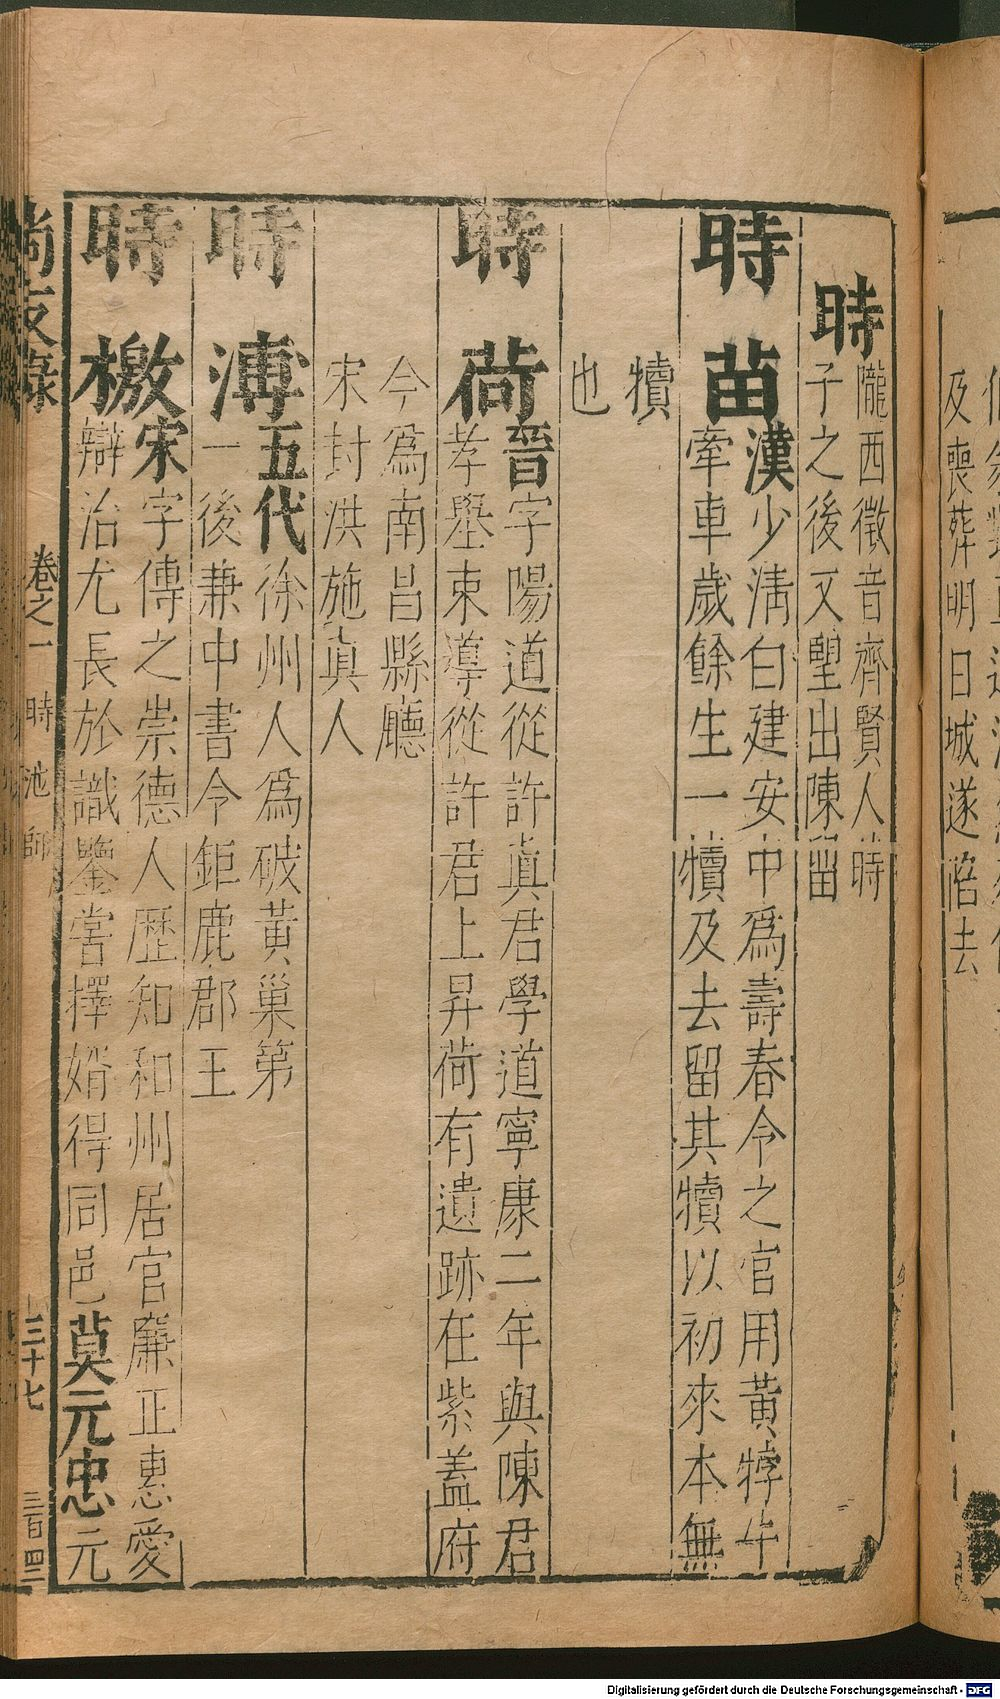 及喪葬明日城遂陷去
時
隴西徵音齊賢人時
子之後又望出陳留
時苗
漢少淸白建安中爲壽春令之官用黃牸牛
牽車歲餘生一犢及去留其犢以初來本無
犢
也
時荷
晉字陽道從許眞君學道寧康二年與陳君
孝舉東導從許君上昇荷有遺跡在紫蓋府
今爲南昌縣廳
宋封洪施眞人
時溥
五代徐州人爲破黃巢第
一後兼中書令鉅鹿郡王
時檄
宋字傳之崇德人歷知和州居官廉正惠愛
辯治尤長於識鑒嘗擇婿得同邑莫元忠元
尚友錄 卷之一 時池師 三十七 三百四二
Digitalisierung gefördert durch die Deutsche Forschungsgemeinschaft - DFG